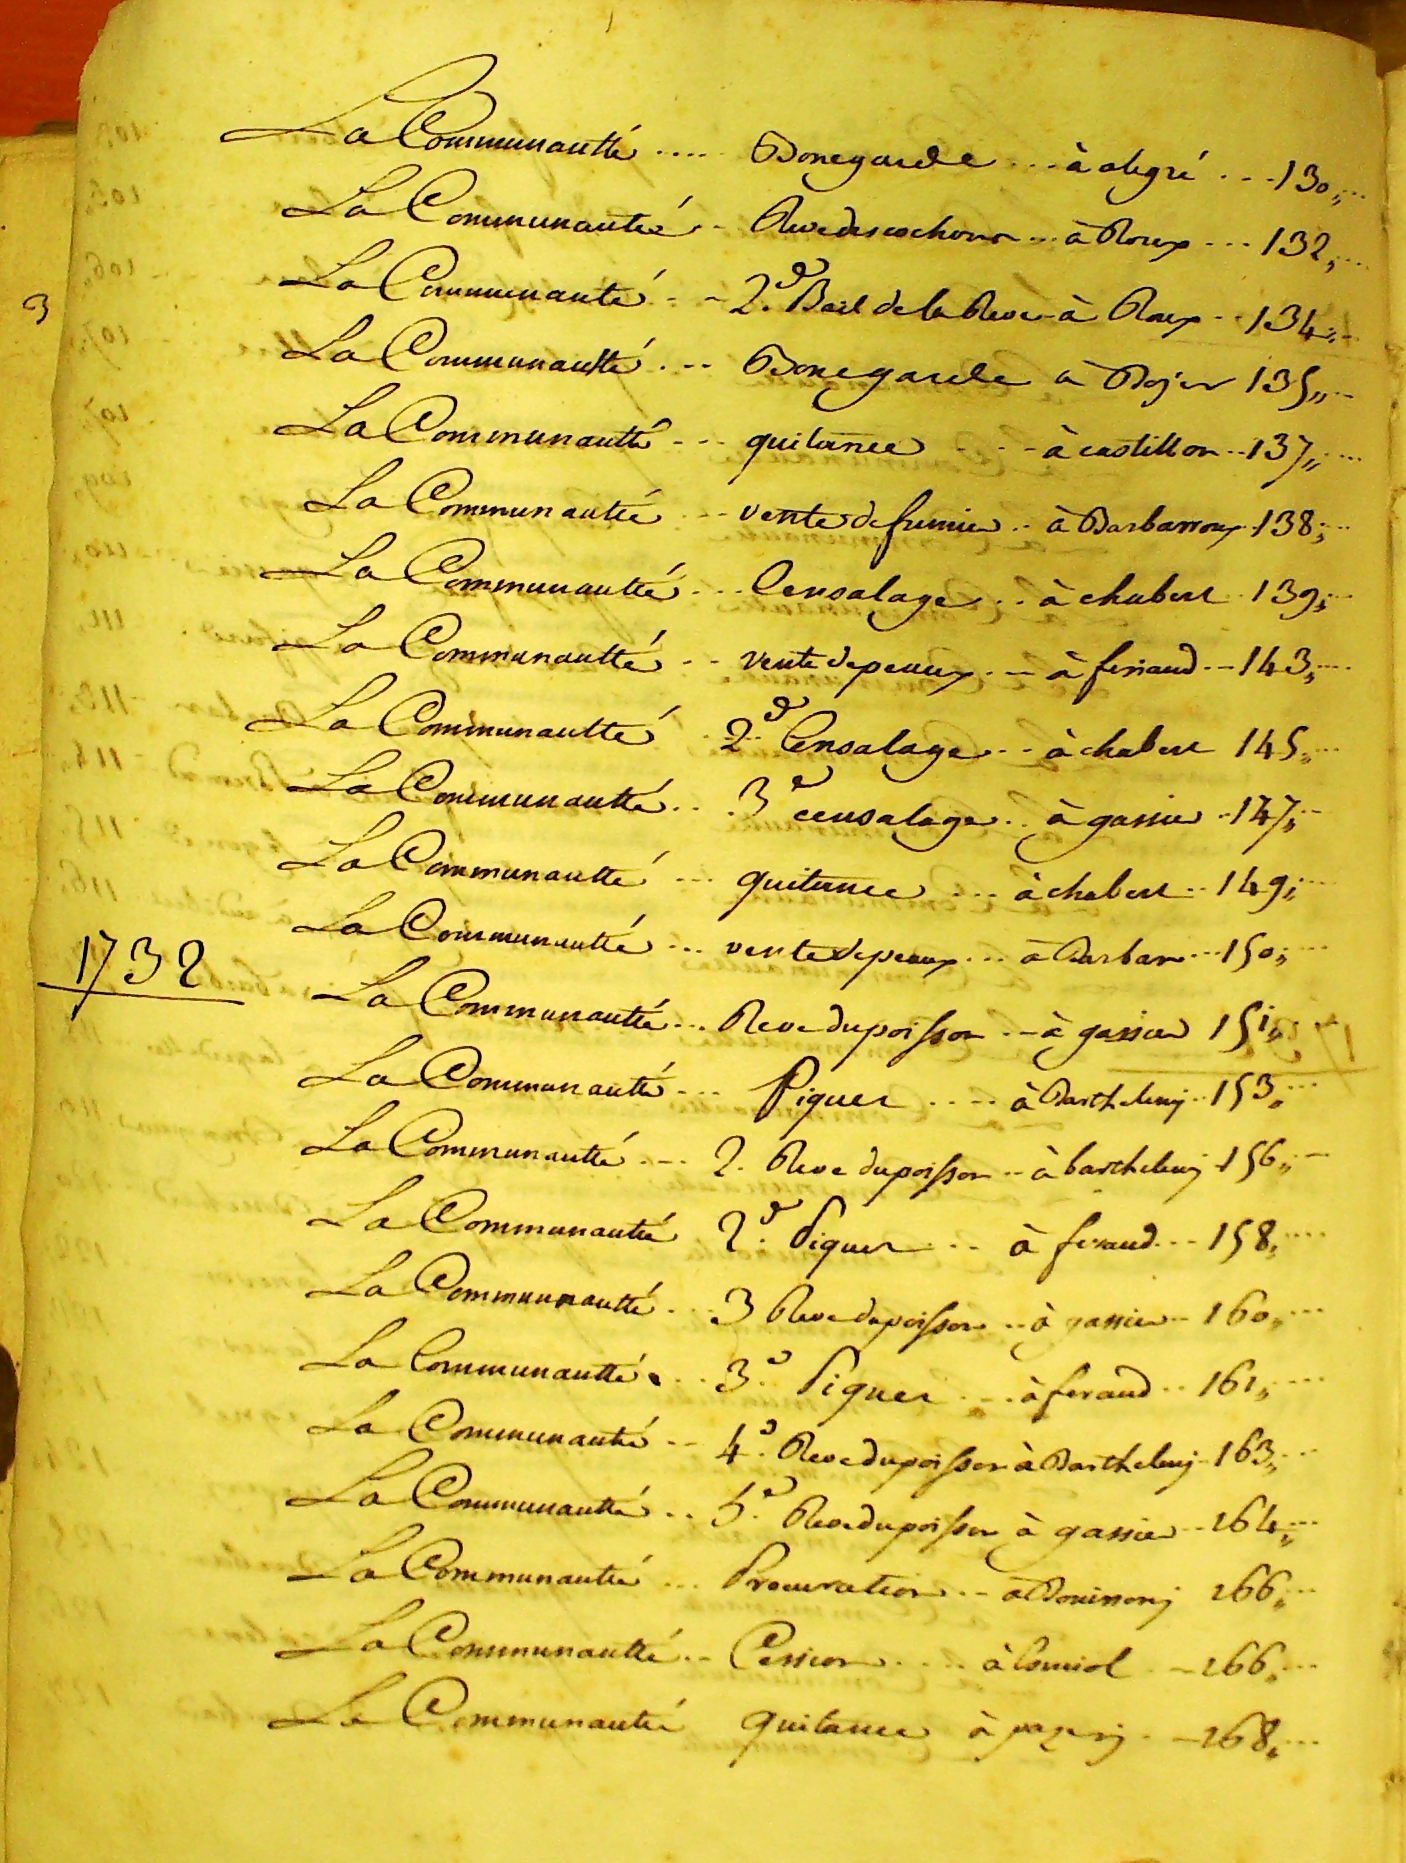 La Communautté .... Bonegarde ... à alegré ... 130,,...
La Communautté .. Reve des cochons ... à Roux ... 132,,...
La Communauté .. 2.d Bail de la Reve à Roux .. 134,,..
3
La Communautté ... Bonegarde à Bojer 135,,..
La Communautté ... quitance ... à castillon .. 137,,...
La Communautté ... vente de fumier .. à Barbarroux .. 138,,...
La Communautté ... Censalage .. à chabert 139,,...
La Communautté .. vente de peaux .. à feriaud .. 143,,...
La Communautté 2.d Censalage .. à chabert 145,,...
La Communautté .. 3e censalage .. à gassier .. 147,,..
La Communautté ... quitance ... à chabert .. 149,,...
La Communautté ... vente de peaux ... à Barbar ... 150,,...
1732
La Communautté ... Reve du poisson .. à gassier 151,,
La Communautté ... Piquet .... à Barthelemj .. 153,,...
La Communautté ... 2. Reve du poisson .. à barthelemj 156,,..
La Communautté 2.d Piquet ... à feraud ... 158,,...
La Communautté ... 3 Reve du poisson .. à gassier .. 160,,...
La Communautté ... 3e Piquet ... à feraud .. 161,,...
La Communautté .. 4e Reve du poisson à Barthelemj .. 163,,...
La Communautté .. 5e Reve du poisson à gassier .. 164,,...
La Communautté ... Procuration .. à 166,,...
La Communautté .. Cession .... à .. 166,,...
La Communautté quitance à .. 168,,...